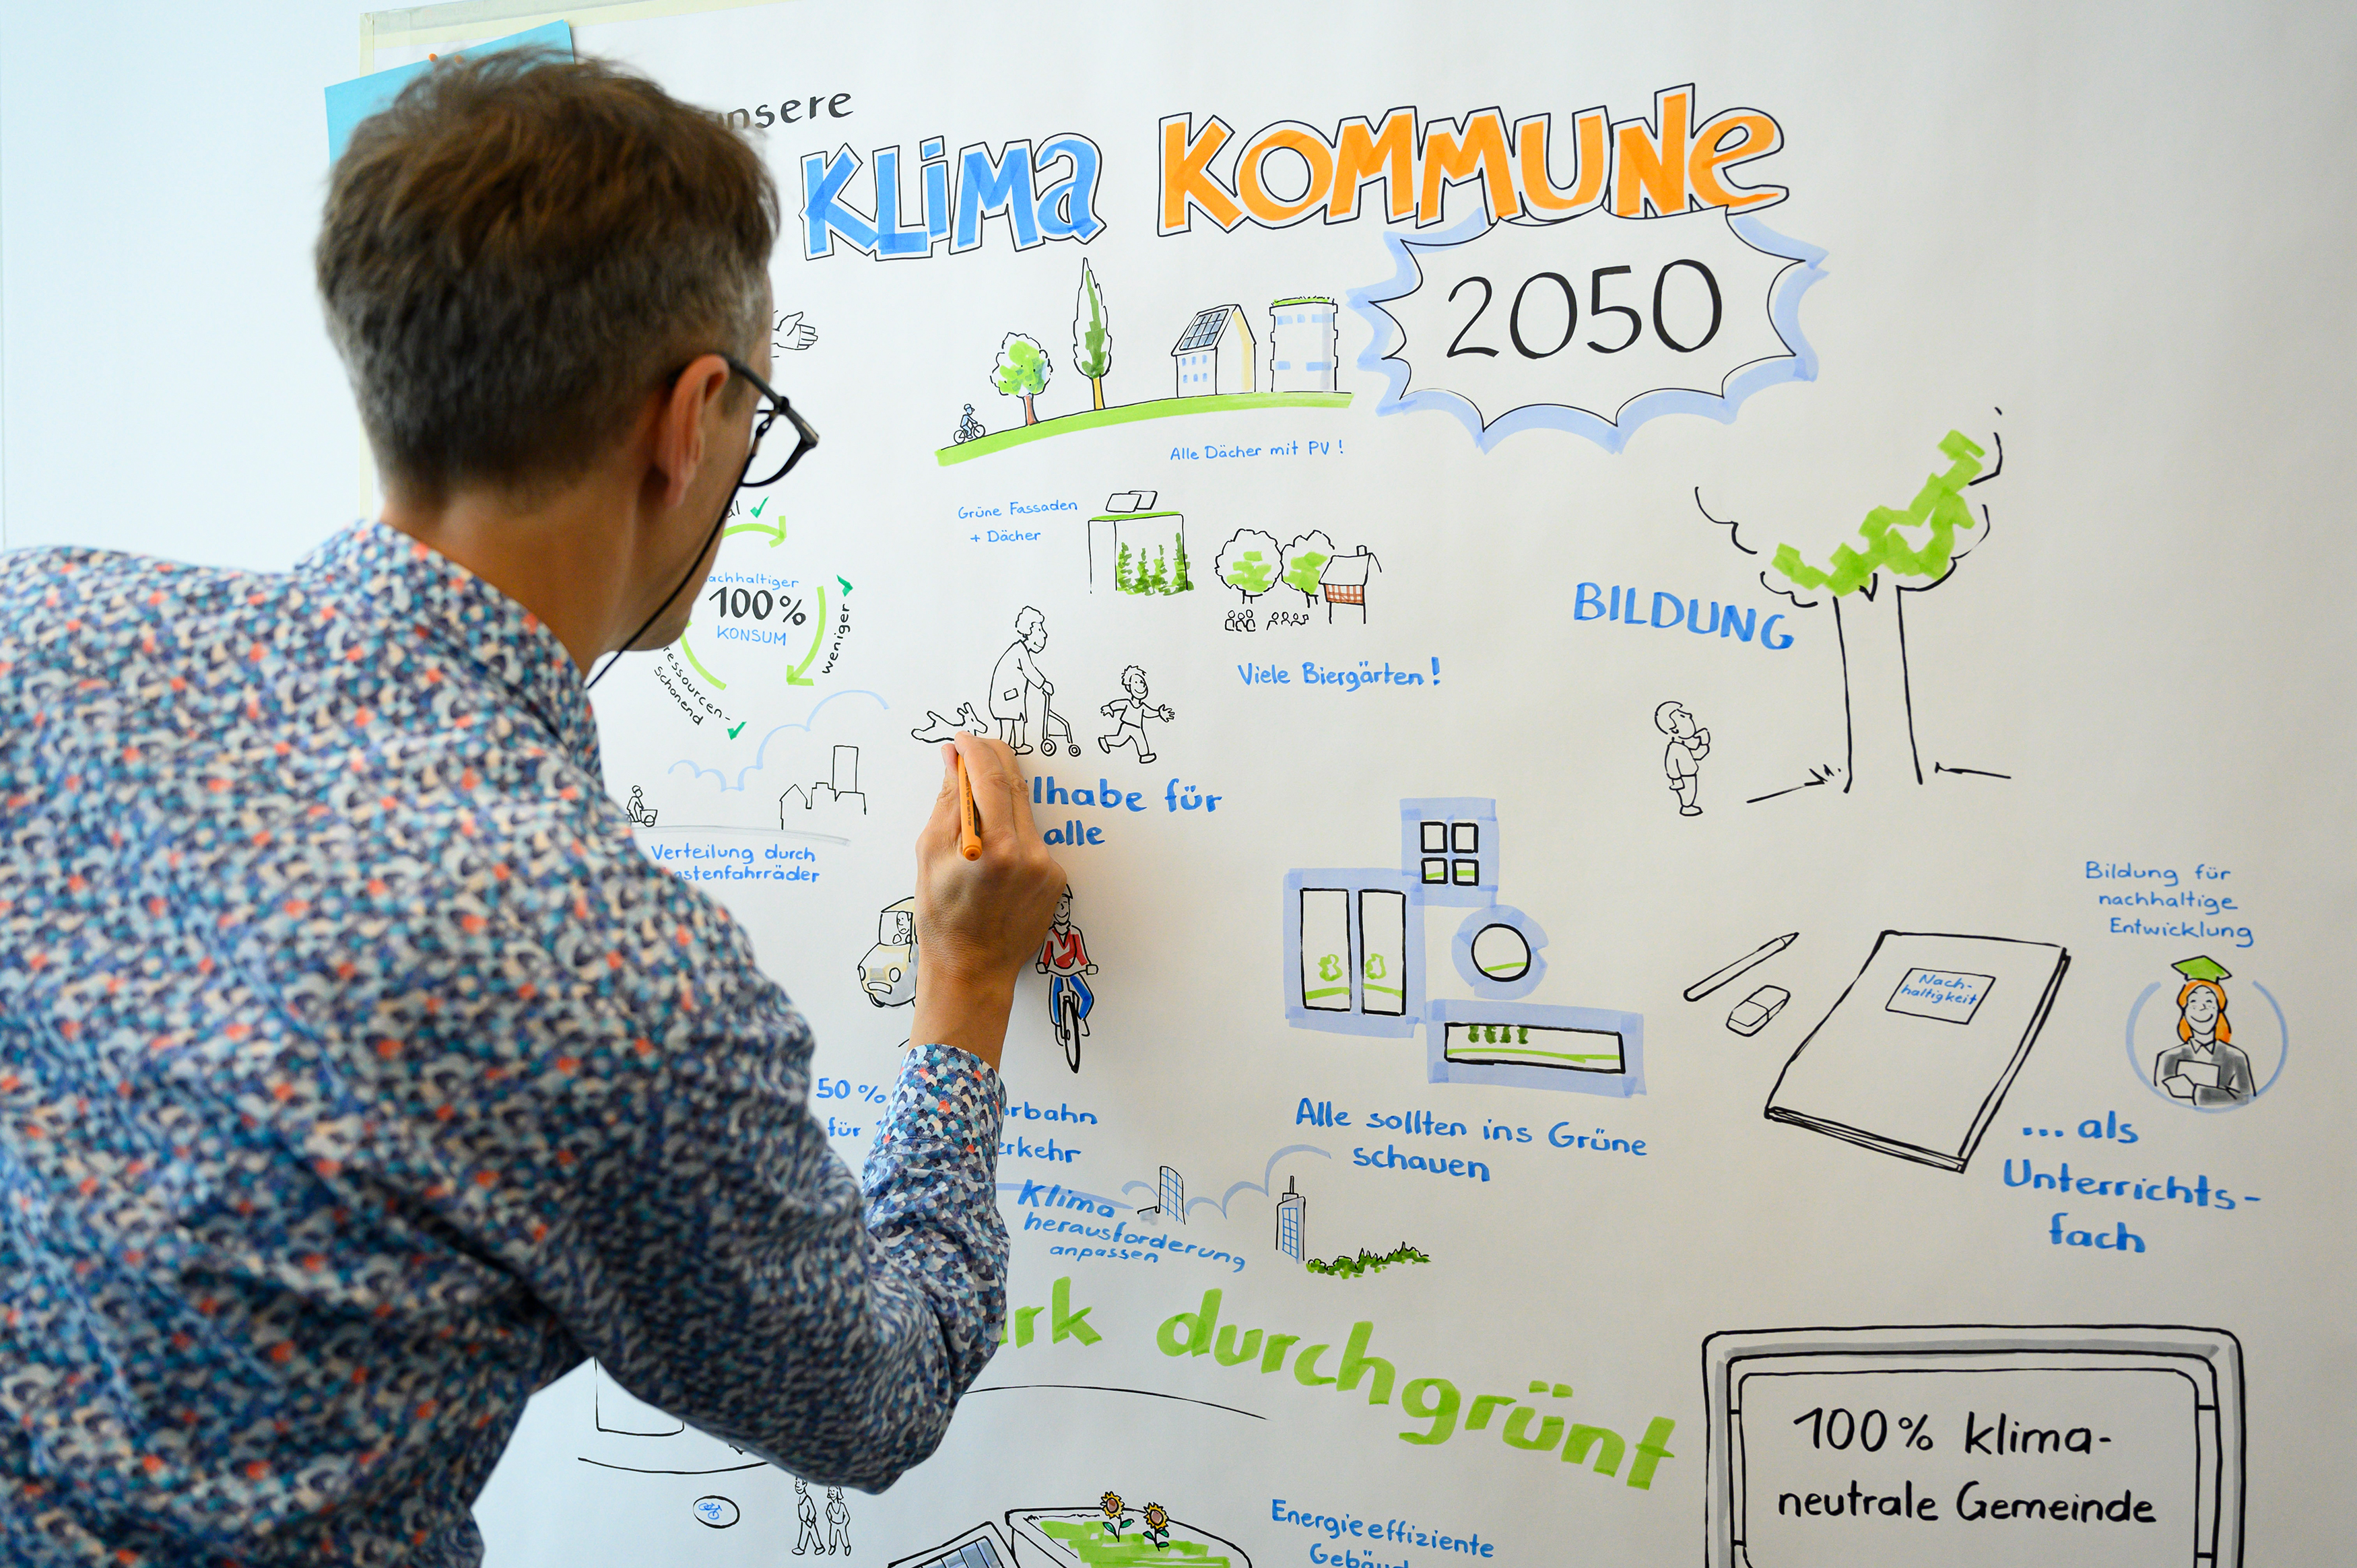 KLIMA KOMMUNE
2050
Alle Dächer mit PV!
Grüne Fassaden
+ Dächer
100%
KONSUM
weniger
ressourcen-
schonend
Viele Biergärten!
BILDUNG
für
alle
Verteilung durch
Bildung für
nachhaltige
Entwicklung
Nach-
haltigkeit
50%
für
Alle sollten ins Grüne
schauen
... als
Unterrichts-
fach
Klima
herausforderung
anpassen
durchgrünt
100% klima-
neutrale Gemeinde
Energieeffiziente